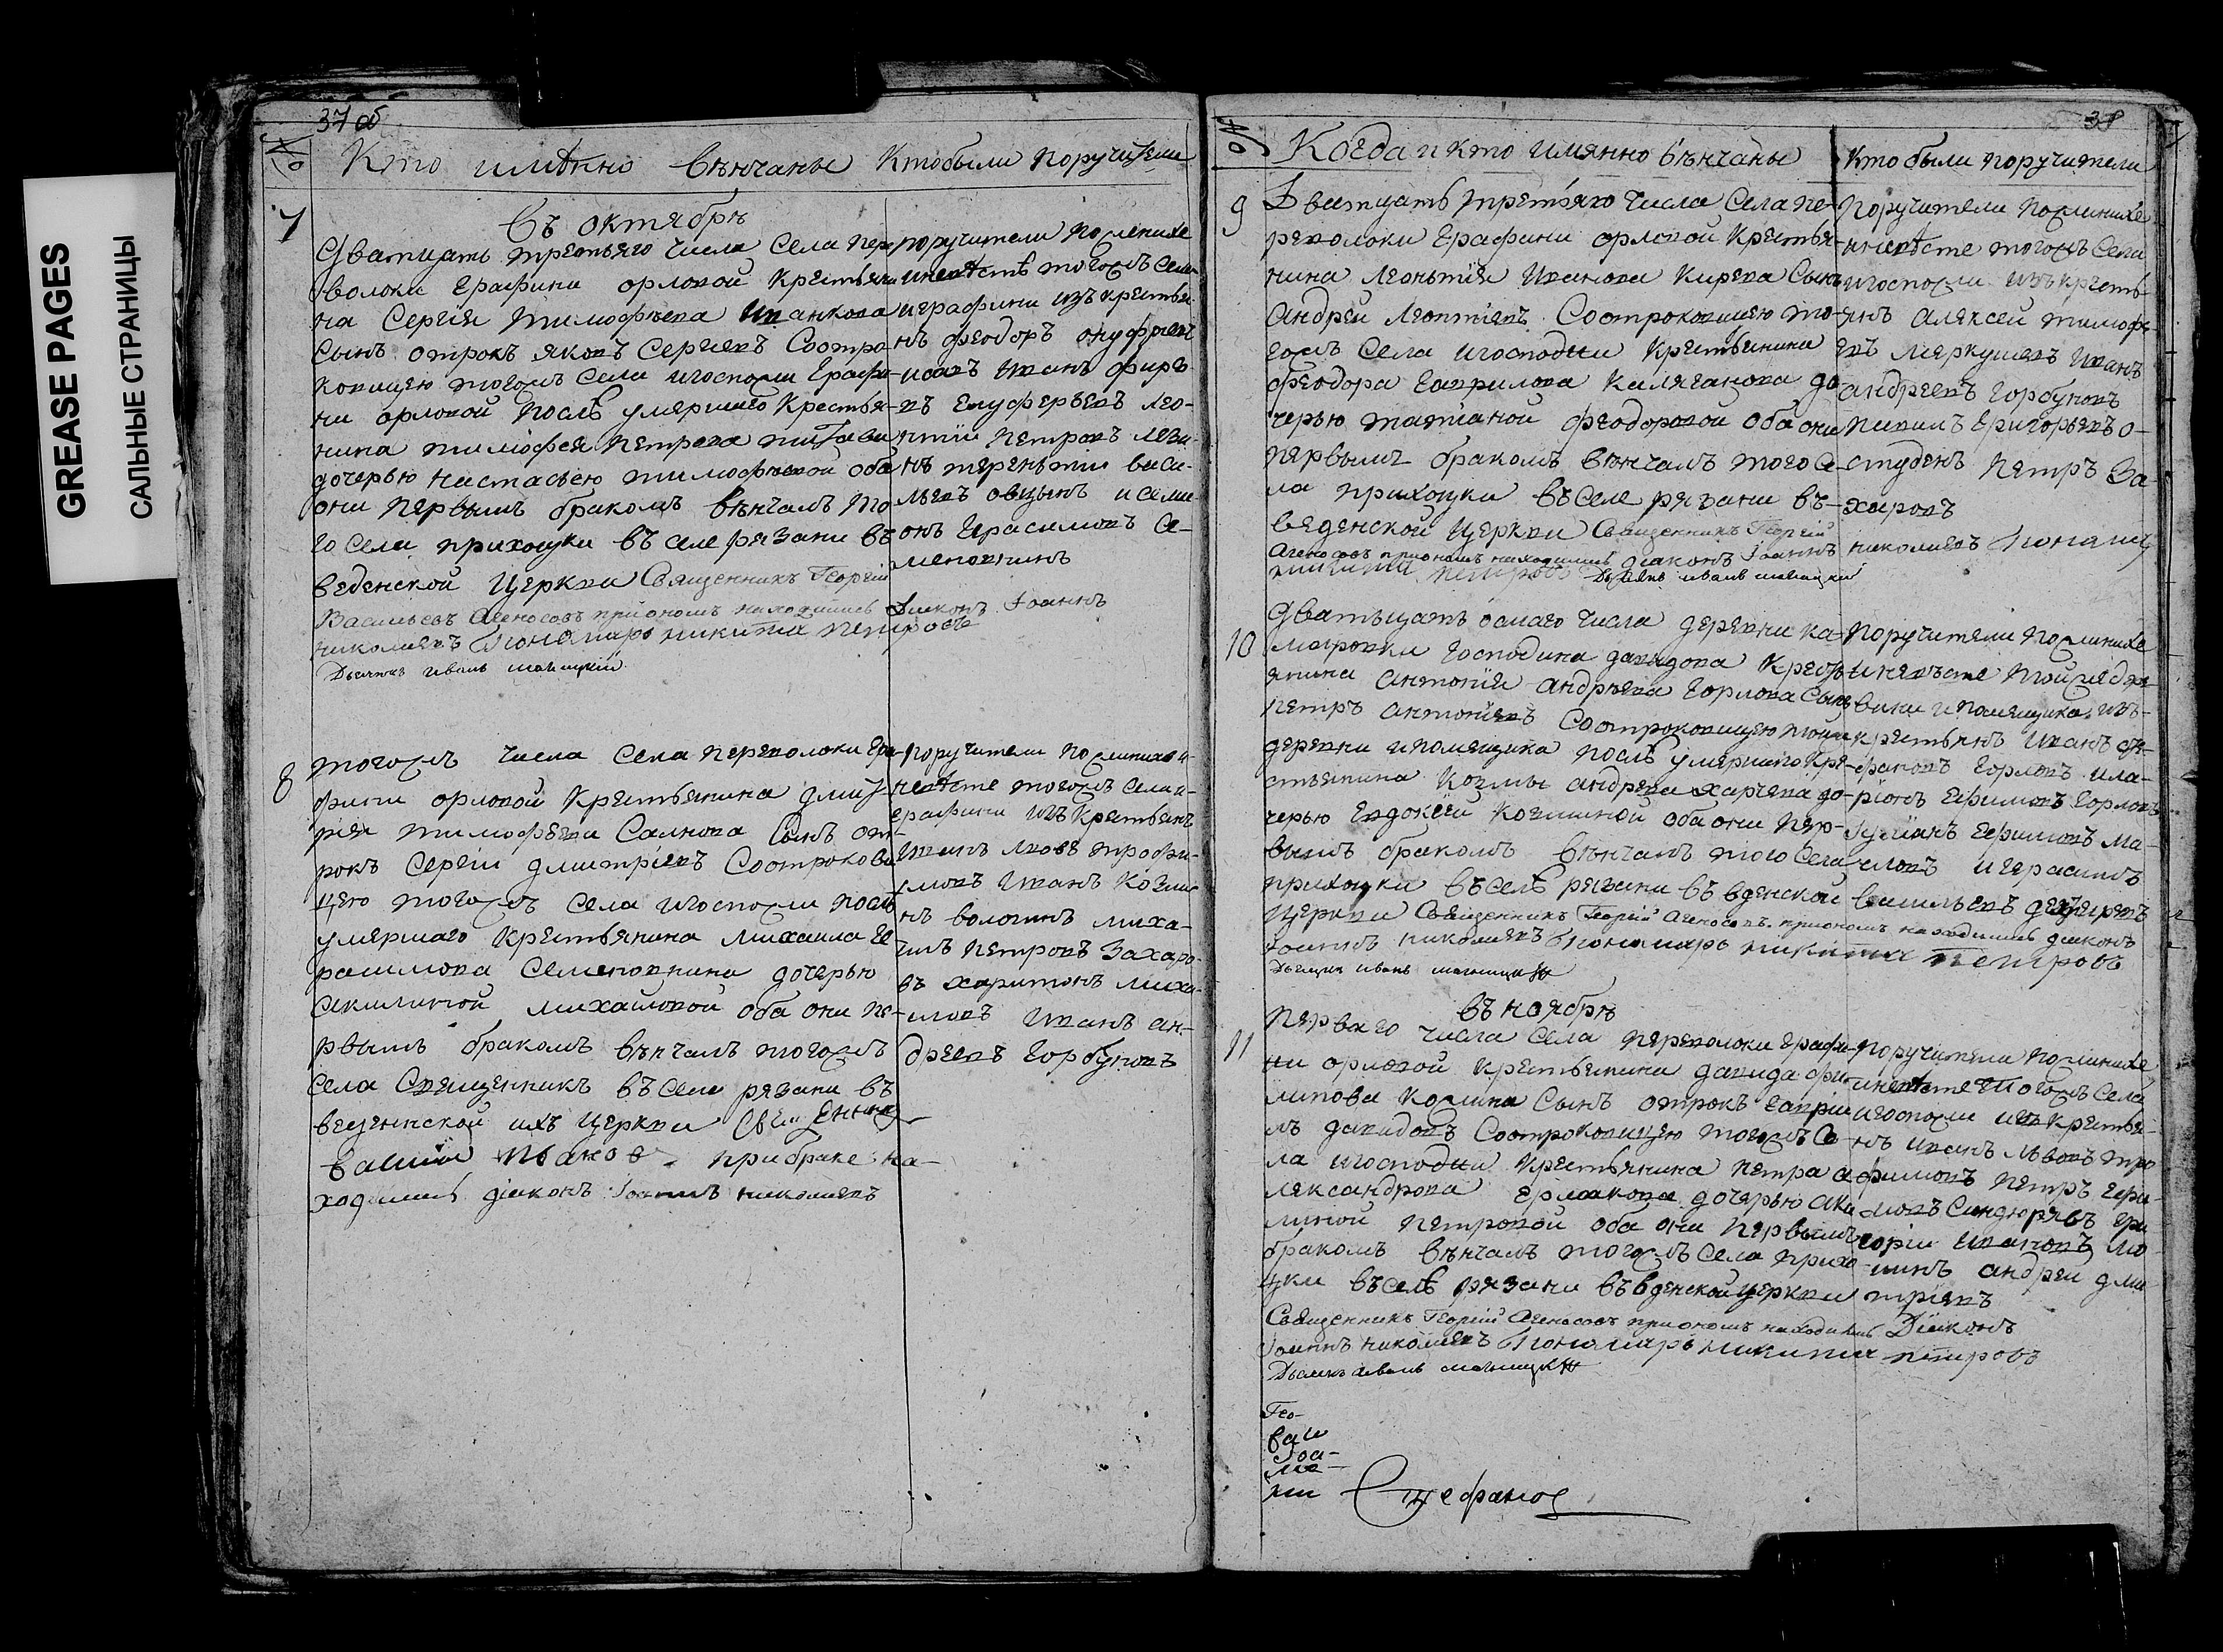 GREASE PAGES
САЛЬНЫЕ СТРАНИЦЫ
37 об
№
Кто имѣнно вѣнчаны
Кто были поручители
7
Въ октябрѣ
Дватцать третьяго числа села пере
волоки Графини орловой крестьяни
на Сергія тимофѣева
Сынъ отрокъ яковъ Сергіевъ Соотро
ковицею тогожъ села игоспожи Графи
ни орловой послѣ умершаго крестья
нина тимофея петрова
дочерью настасьею тимофѣевой оба
они первымъ бракомъ вѣнчалъ то
го села приходцки въ селе рязани въ
веденской Церкви Священникъ Георгій
Васильевъ Агеносовъ при ономъ находились Діаконъ Іоаннъ
николаевъ Пономарь никита петровъ
Дьячекъ иванъ
поручители пожениxе
иневѣстѣ тогожъ села
играфини изъ крестья
нъ феодоръ онуфріевъ
иванъ
въ Елуферьевъ лео-
нтій петровъ
нъ терентій васи-
льевъ овцынъ и семи
онъ Герасимовъ Се-
меновнинъ
8
тогожъ числа села переволоки Гра-
фини орловой крестьянина дмит-
рія тимофѣева Сынъ от-
рокъ Сергій дмитріевъ Соотрокови
цею тогожъ села игоспожи послѣ
умершаго крестьянина михаила Ге
расимова Семеновнина дочерью
акилиной михайловой оба они пе-
рвымъ бракомъ вѣнчалъ тогожъ
села Священникъ въ селе рязани въ
веденнской ихъ церкви
василій ивановъ при браке на-
ходились діаконъ Іоаннъ николаевъ
поручители по женихе и
невѣсте тогожъ села и
Графини изъ крестьянъ
иванъ львовъ трофи-
мовъ иванъ козми
нъ волотинъ миха-
илъ петровъ Захаро-
въ харитонъ миха-
иловъ иванъ ан-
дреевъ Горбуновъ
38
№
Когда и кто имянно вѣнчаны
Кто были поручители
9
Дватцать третьяго числа села пе-
револоки Графини орловой крестья-
нина леонтія иванова кирева Сынъ
андрей леонтіевъ Соотроковицею то-
гожъ села игосподжи крестьянина
феодора Гаврилова калаганова до
черью татіаной феодоровой оба они
первымъ бракомъ вѣнчалъ того се
ла приходцки въ селе рязани въ-
веденской Церкви Священникъ Георгій
Агеносовъ при ономъ находились діаконъ Іоаннъ николаевъ Пономарь
никита петровъ Дьячекъ иванъ
поручители по женихе
иневѣсте тогожъ села
игоспожи изъ кресть
янъ алексей тимофе
евъ меркушевъ иванъ
андреевъ Горбуновъ
Григорьевъ о-
студенъ петръ За-
харовъ
10
Дватцать осмаго числа деревни ка-
маровки Господина давидова крестья
янина антонія андрѣева Горлова Сынъ
петръ антоніевъ Соотроковицею тойже
деревни ипомещика послѣ умершаго кре-
стьянина козмы андреева харчева до-
черью Евдокеей козминой оба они пер-
вымъ бракомъ вѣнчалъ того села
приходцки въ селѣ рязани въ вденской
Церкви Священникъ Георгій Агеносовъ при ономъ находились діаконъ
Іоаннъ николаевъ Пономарь никита петровъ
Дьячекъ иванъ
поручители по женихе
иневѣсте тойжедере
вни и помещика изъ-
крестьянъ иванъ
Горловъ ила-
ріонъ Ефимовъ Горловъ
Ефимовъ ма-
словъ и герасимъ
васильевъ
11
въ ноябрѣ
перваго числа села переволоки Графи-
ни орловой крестьянина давида фи-
липова козмина Сынъ отрокъ Гаврии
лъ давидовъ Соотроковицею тогожъ се
ла игосподжи крестьянина петра а
лександрова ермакова дочерью аки
линой петровой оба они первымъ
бракомъ вѣнчалъ тогожъ села прихо-
цки въ селѣ рязани въ вденской церкви
Священникъ Георгій Агеносовъ при ономъ находились Діаконъ
Іоаннъ николаевъ Пономарь никита петровъ
Дьячекъ иванъ
поручители по женихе
иневѣсте тогожъ села
игоспожи изъ крестья-
нъ иванъ львовъ тро
фимовъ петръ Ефи-
мовъ Синдюревъ Гри
горій ивановъ
шинъ андрей дми
тріевъ
Гео-
васи
Іоа-
ни
Стефанов